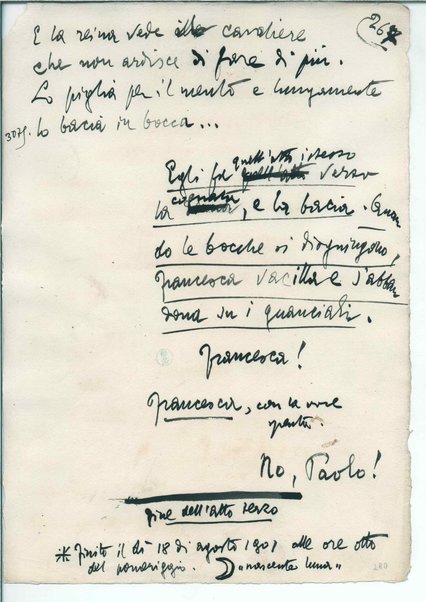 267
E la reina vede il cavaliere
che non ardisce di fare di più.
Lo piglia per il mento e lungamente
3075. lo bacia in bocca...
quell'atto istesso
Egli fa quell'atto verso
la cognata, e la bacia. Quan
do le bocche si disgiungono,
Francesca vacilla e s'abban
dona su i guanciali.
Francesca!
Francesca, con la voce
spenta.
No, Paolo!
fine dell'atto terzo
* Finito il dì 18 di agosto 1901 alle ore otto
del pomeriggio. ☽ "nascente luna"
280